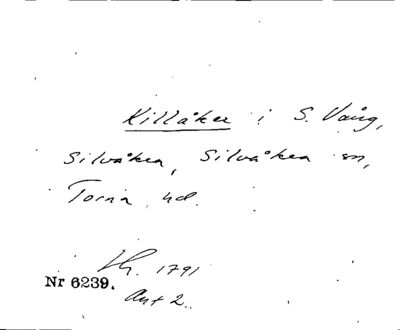 Killåker i S. Vång,
Silvåkra, Silvåkra sn,
Torna hd.
1791
Nr 6239.
Ant 2.